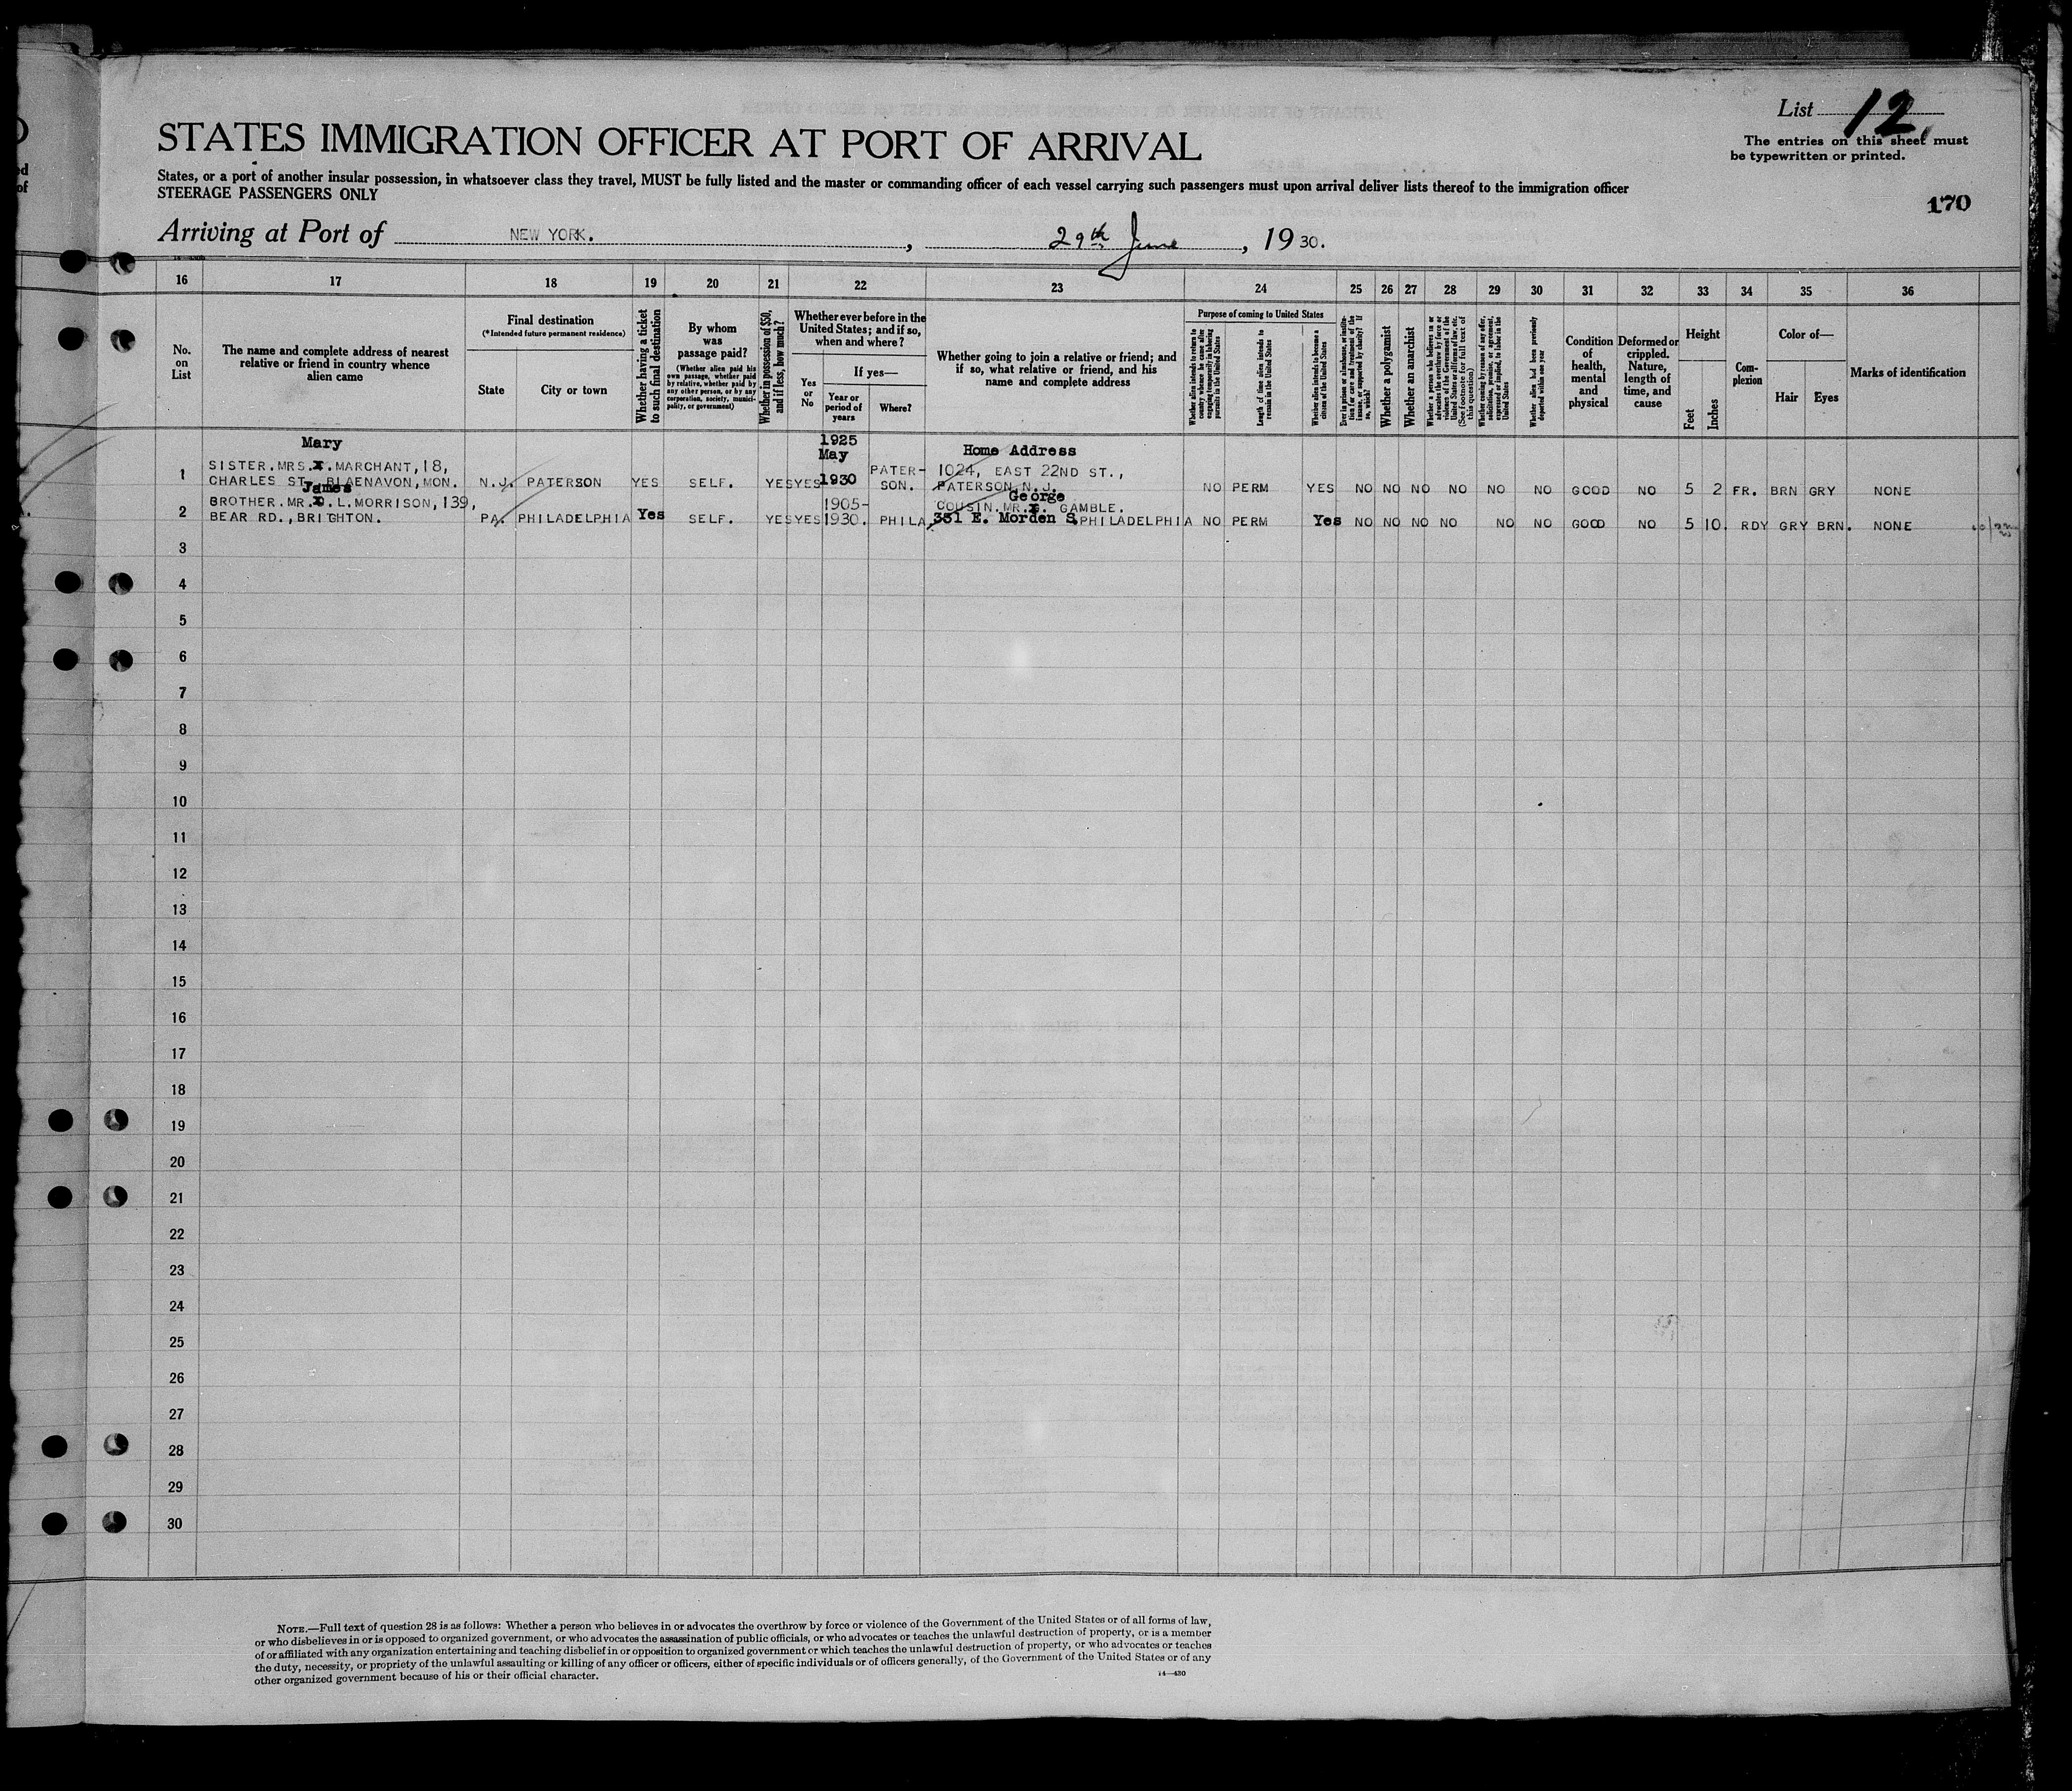 List 12
The entries on this sheet must
be typewritten or printed.
STATES IMMIGRATION OFFICER AT PORT OF ARRIVAL
States, or a port of another insular possession, in whatsoever class they travel, MUST be fully listed and the master or commanding officer of each vessel carrying such passengers must upon arrival deliver lists thereof to the immigration officer
STEERAGE PASSENGERS ONLY
170
Arriving at Port of NEW YORK. , 29th June , 19 30.
16 17 18 19 20 21 22 23 24 25 26 27 28 29 30 31 32 33 34 35 36
No. on List
The name and complete address of nearest
relative or friend in country whence
alien came
Final destination
(*Intended future permanent residence)
State
City or town
Whether having a ticket
to such final destination
By whom
was
passage paid?
(Whether alien paid his
own passage, whether paid
by relative, whether paid by
any other person, or by any
corporation, society, munici-
pality, or government)
Whether in possession of $50,
and if less, how much?
Whether ever before in the
United States; and if so,
when and where?
Yes
or
No
If yes—
Year or
period of
years
Where?
Whether going to join a relative or friend; and
if so, what relative or friend, and his
name and complete address
Purpose of coming to United States
Whether alien intends to return to
country whence he came after
engaging temporarily in laboring
pursuits in the United States
Length of time alien intends to
remain in the United States
Whether alien intends to become a
citizen of the United States
Ever in prison or almshouse, or institu-
tion for care and treatment of the
insane, or supported by charity? If
so, which?
Whether a polygamist
Whether an anarchist
Whether a person who believes in or
advocates the overthrow by force or
violence of the Government of the
United States or all forms of law, etc.
(See footnote for full text of
this question)
Whether coming by reason of any offer,
solicitation, promise, or agreement,
expressed or implied, to labor in the
United States
Whether alien had been previously
deported within one year
Condition
of
health,
mental
and
physical
Deformed or
crippled.
Nature,
length of
time, and
cause
Height
Feet
Inches
Com-
plexion
Color of—
Hair
Eyes
Marks of identification
Mary 1925 Home Address
May
1 SISTER.MRS. . MARCHANT,18, PATER- 1024, EAST 22ND ST.,
CHARLES ST. BLAENAVON,MON. N.J. PATERSON YES SELF. YES YES 1930 SON. PATERSON N.J. NO PERM YES NO NO NO NO NO NO GOOD NO 5 2 FR. BRN GRY NONE
James George
2 BROTHER.MR. .L.MORRISON,139, 1905- COUSIN.MR. . GAMBLE.
BEAR RD.,BRIGHTON. PA. PHILADELPHIA Yes SELF. YES YES 1930. PHILA. 331 E. Morden S. PHILADELPHIA NO PERM Yes NO NO NO NO NO NO GOOD NO 5 10. RDY GRY BRN. NONE
3
4
5
6
7
8
9
10
11
12
13
14
15
16
17
18
19
20
21
22
23
24
25
26
27
28
29
30
NOTE.—Full text of question 28 is as follows: Whether a person who believes in or advocates the overthrow by force or violence of the Government of the United States or of all forms of law,
or who disbelieves in or is opposed to organized government, or who advocates the assassination of public officials, or who advocates or teaches the unlawful destruction of property, or is a member
of or affiliated with any organization entertaining and teaching disbelief in or opposition to organized government or which teaches the unlawful destruction of property, or who advocates or teaches
the duty, necessity, or propriety of the unlawful assaulting or killing of any officer or officers, either of specific individuals or of officers generally, of the Government of the United States or of any
other organized government because of his or their official character.
14—430